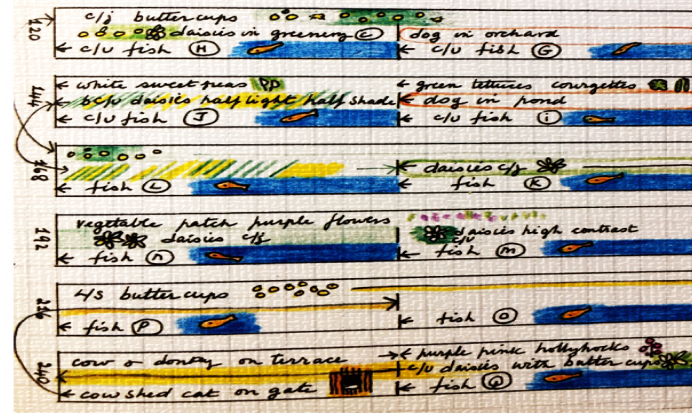 120
c/j butter cups
daisies in greening C
dog in orchard
← c/u fish H
← c/u fish G
144
← white sweet peas
← green lettuces courgettes
← b c/u daisies half light half shade
← dog in pond
← c/u fish J
← c/u fish i
168
← daisies c/j
← fish L
← fish K
192
vegetable patch purple flowers
daisies c/j
daisies high contrast
c/u
← fish n
← fish m
216
4/s butter cups
← fish P
← fish O
240
cow & donkey on terrace
← purple pink hollyhocks
c/u daisies with butter cups
← cow shed cat on gate
← fish Q